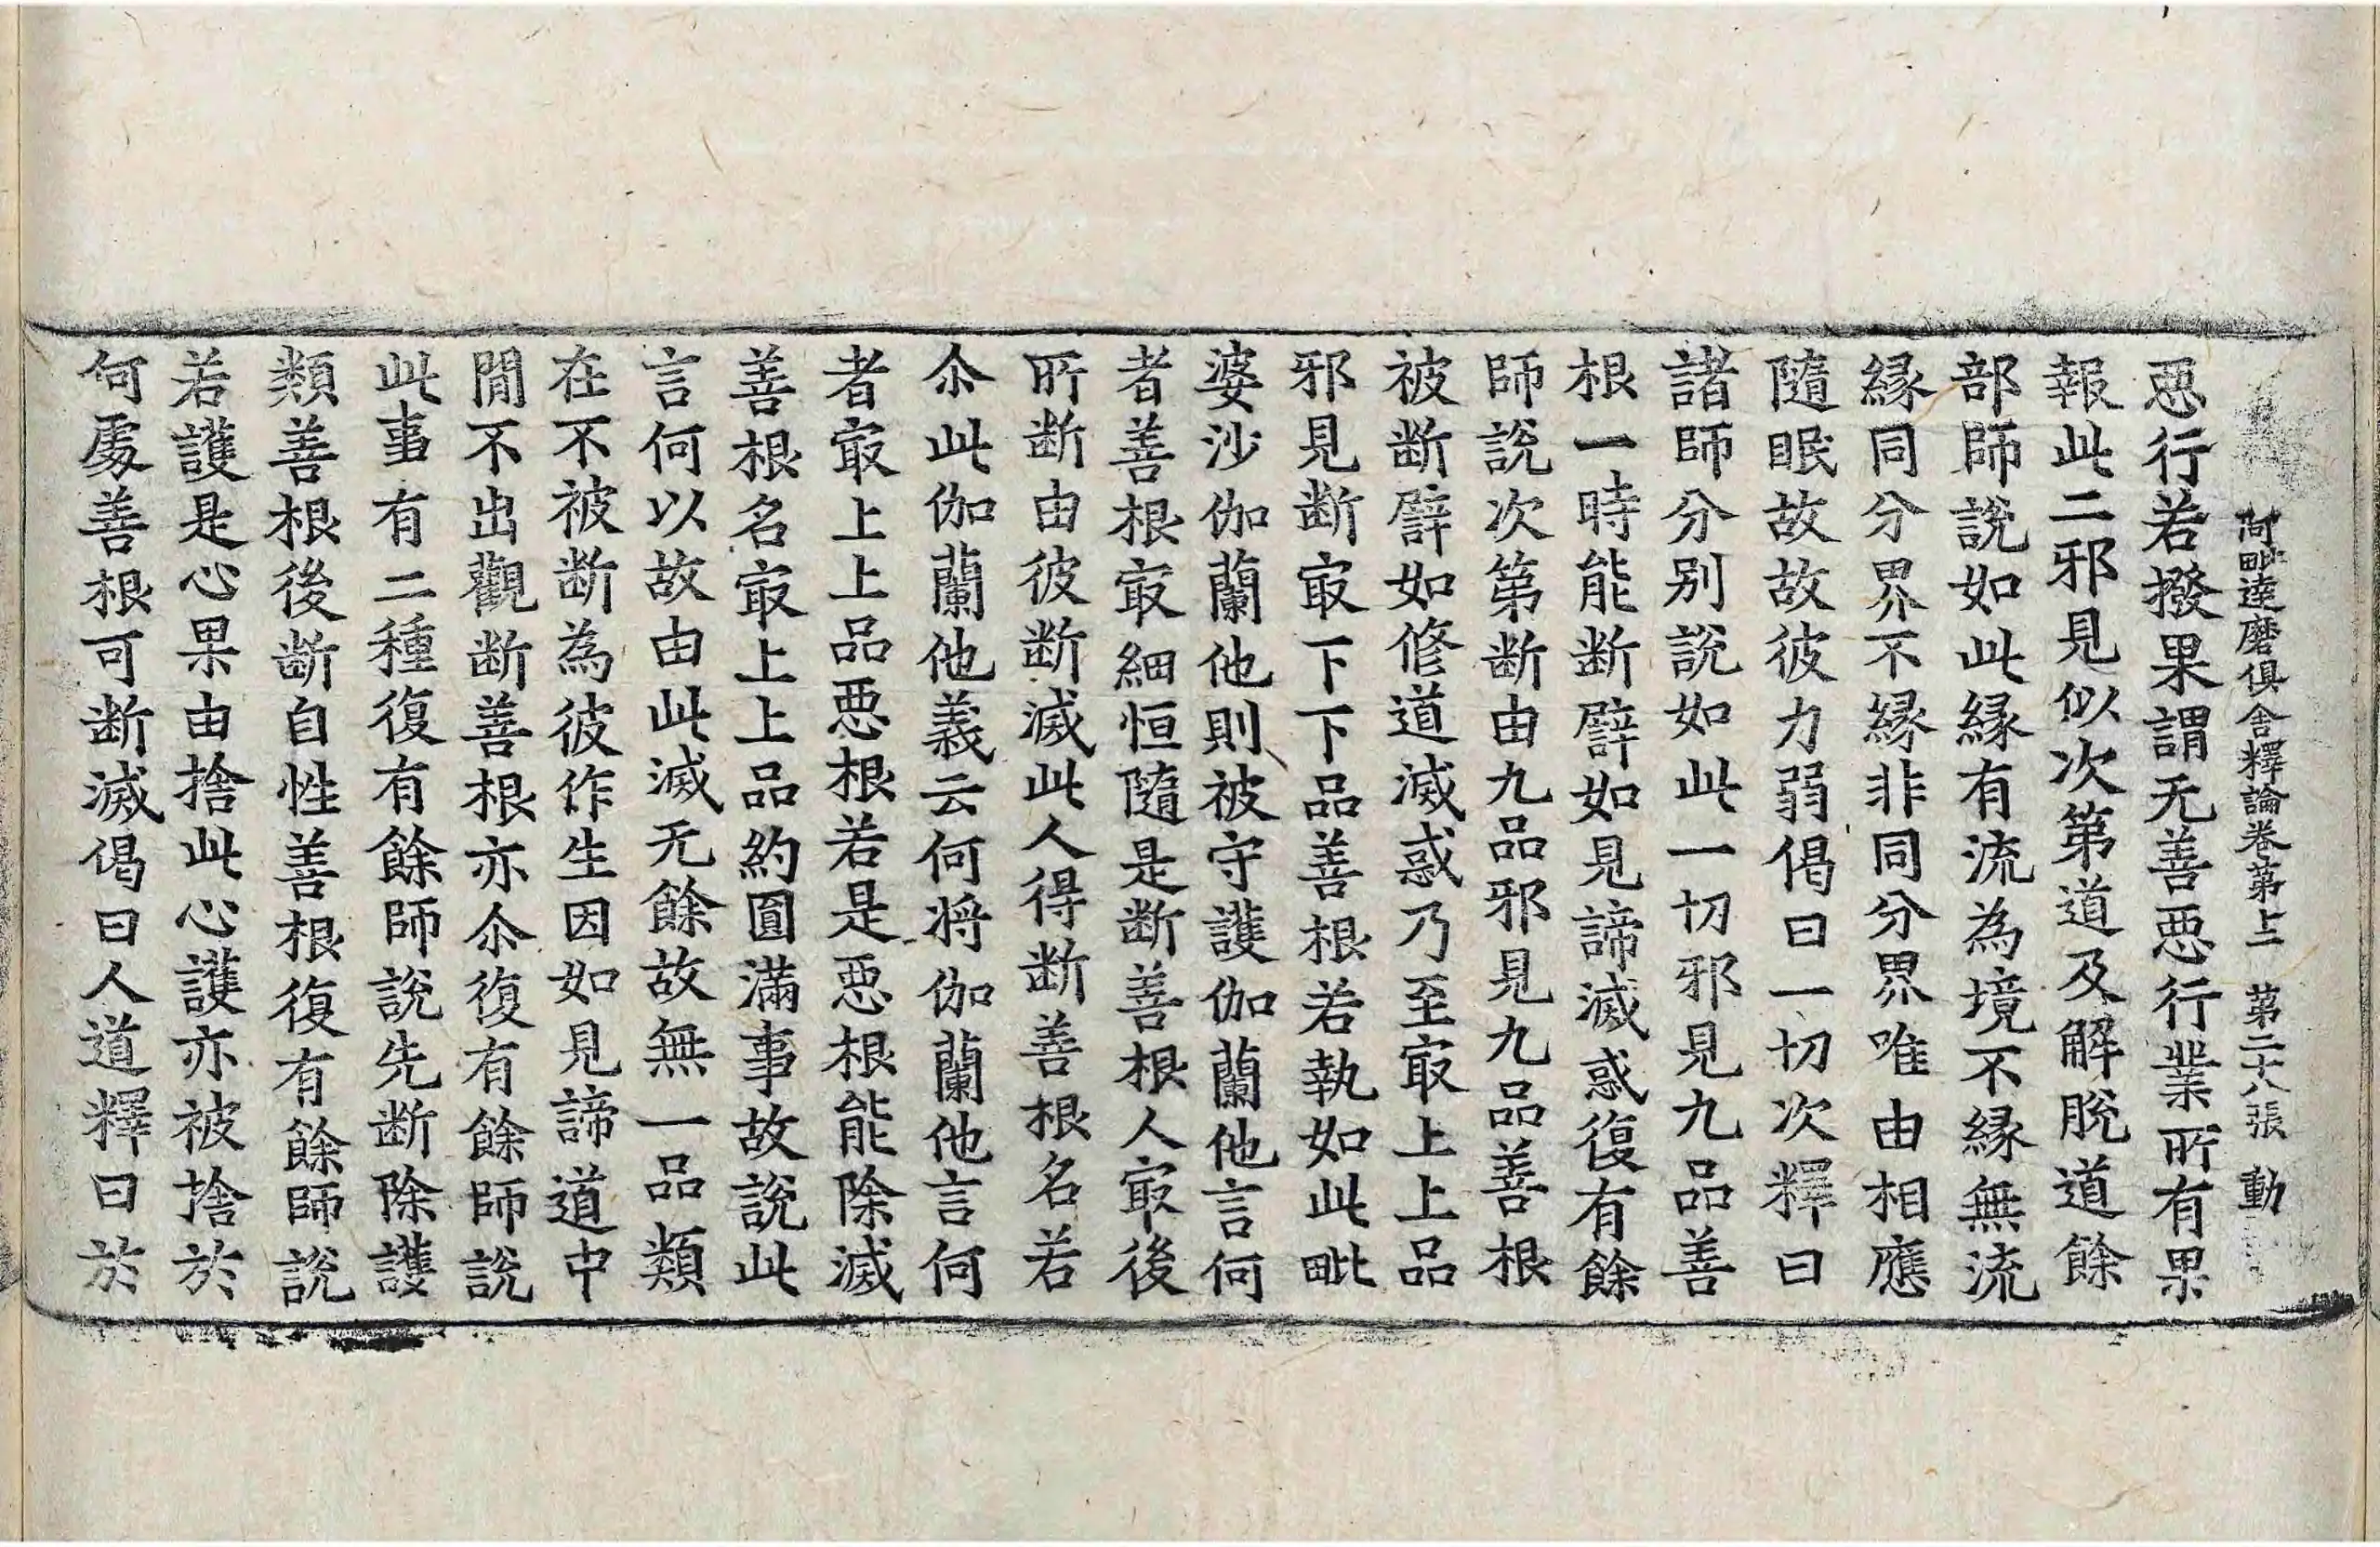 阿毗達磨俱舍釋論卷第十二 第二十八張 動
惡行若撥果謂无善惡行業所有果
報此二邪見似次第道及解脫道餘
部師說如此緣有流為境不緣無流
緣同分界不緣非同分界唯由相應
隨眠故故彼力弱偈曰一切次釋曰
諸師分別說如此一切邪見九品善
根一時能斷譬如見諦滅惑復有餘
師說次第斷由九品邪見九品善根
被斷譬如修道滅惑乃至㝡上上品
邪見斷㝡下下品善根若執如此毗
婆沙伽蘭他則被守護伽蘭他言何
者善根㝡細恒隨是斷善根人㝡後
所斷由彼斷滅此人得斷善根名若
尒此伽蘭他義云何將伽蘭他言何
者㝡上上品惡根若是惡根能除滅
善根名㝡上上品約圓滿事故說此
言何以故由此滅无餘故無一品類
在不被斷為彼作生因如見諦道中
間不出觀斷善根亦尒復有餘師說
此事有二種復有餘師說先斷除護
類善根後斷自性善根復有餘師說
若護是心果由捨此心護亦被捨於
何處善根可斷滅偈曰人道釋曰於